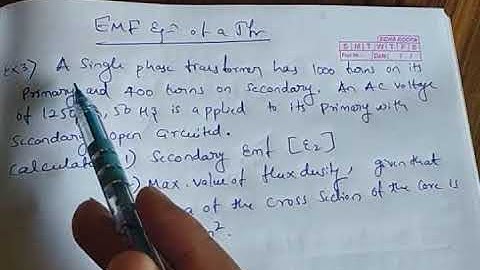 EMF Eqn of a Thr
SIDHA GOOFA
S M T W T F S
DATE: / /
Ex3) A Single phase transformer has 1000 turns on its
Primary and 400 turns on secondary. An AC voltage
of 1250 , 50 Hz is applied to its Primary with
Secondary open Circuited.
Calculate 1) Secondary Emf [E2]
Max. value of flux dusity, given that
of the cross section of the core is